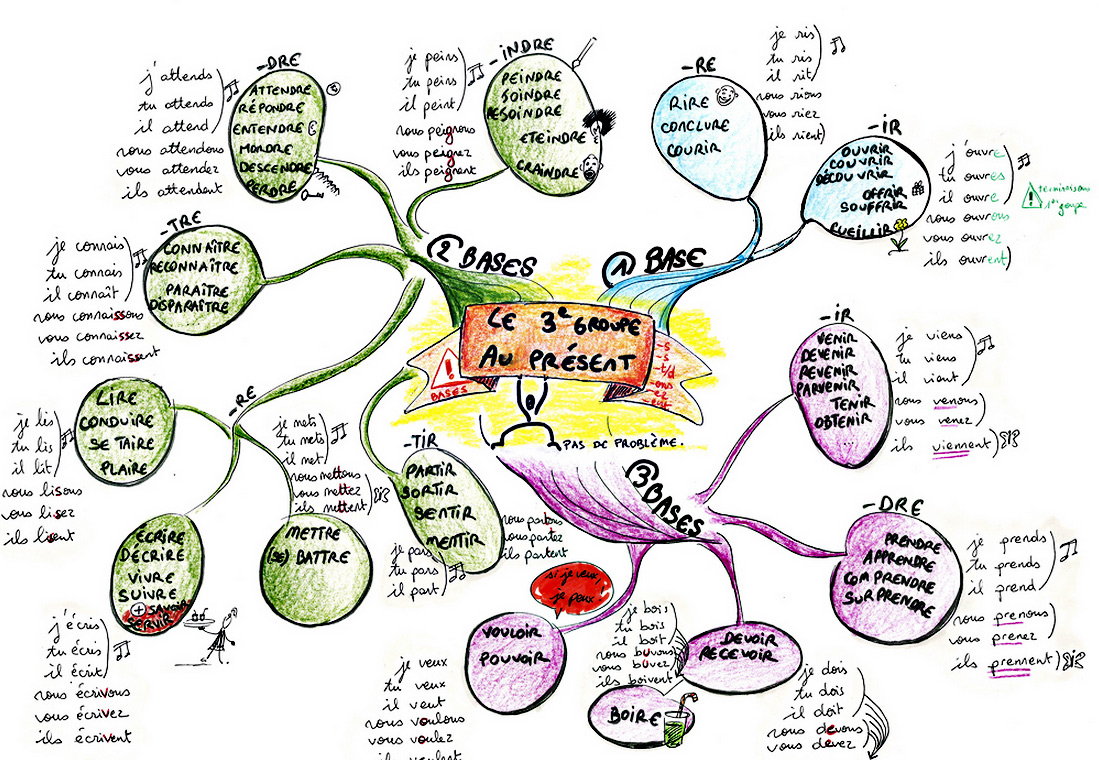 LE 3e GROUPE
AU PRÉSENT
BASES
-s
-s
-t/d
-ons
-ez
-ent
PAS DE PROBLÈME.
① BASE
-RE
RIRE
CONCLURE
COURIR
je ris
tu ris
il rit
nous rions
vous riez
ils rient
-IR
OUVRIR
COUVRIR
DÉCOUVRIR
OFFRIR
SOUFFRIR
CUEILLIR
j'ouvre
tu ouvres
il ouvre
nous ouvrons
vous ouvrez
ils ouvrent
terminaisons
1er groupe
② BASES
-INDRE
PEINDRE
JOINDRE
REJOINDRE
ETEINDRE
CRAINDRE
je peins
tu peins
il peint
nous peignons
vous peignez
ils peignent
-DRE
ATTENDRE
RÉPONDRE
ENTENDRE
MORDRE
DESCENDRE
PERDRE
j'attends
tu attends
il attend
nous attendons
vous attendez
ils attendent
-TRE
CONNAÎTRE
RECONNAÎTRE
PARAÎTRE
DISPARAÎTRE
je connais
tu connais
il connaît
nous connaissons
vous connaissez
ils connaissent
-RE
LIRE
CONDUIRE
SE TAIRE
PLAIRE
je lis
tu lis
il lit
nous lisons
vous lisez
ils lisent
ÉCRIRE
DÉCRIRE
VIVRE
SUIVRE
+ SAVOIR
SERVIR
j'écris
tu écris
il écrit
nous écrivons
vous écrivez
ils écrivent
METTRE
(SE) BATTRE
je mets
tu mets
il met
nous mettons
vous mettez
ils mettent
-TIR
PARTIR
SORTIR
SENTIR
MENTIR
je pars
tu pars
il part
nous partons
vous partez
ils partent
③ BASES
-IR
VENIR
DEVENIR
REVENIR
PARVENIR
TENIR
OBTENIR
...
je viens
tu viens
il vient
nous venons
vous venez
ils viennent
-DRE
PRENDRE
APPRENDRE
COMPRENDRE
SURPRENDRE
je prends
tu prends
il prend
nous prenons
vous prenez
ils prennent
DEVOIR
RECEVOIR
je dois
tu dois
il doit
nous devons
vous devez
BOIRE
je bois
tu bois
il boit
nous buvons
vous buvez
ils boivent
si je veux,
je peux
VOULOIR
POUVOIR
je veux
tu veux
il veut
nous voulons
vous voulez
ils veulent